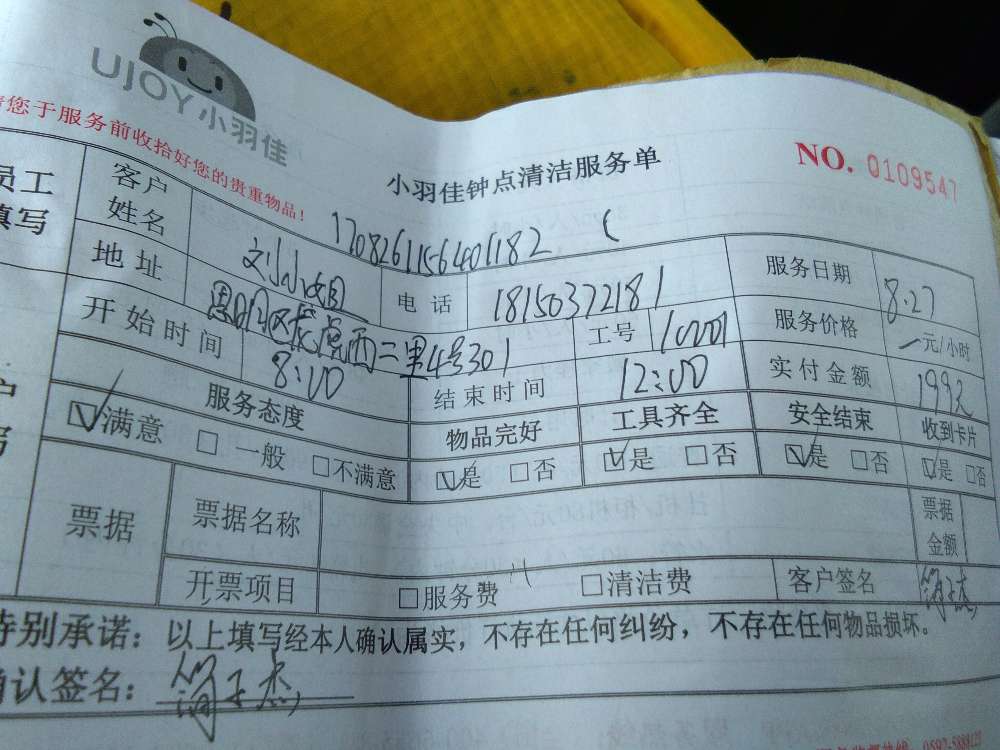 UJOY小羽佳
请您于服务前收拾好您的贵重物品!
小羽佳钟点清洁服务单
NO. 0109547
员工
填写
1708261156401182
客户
姓名
刘小姐
电话
18150372181
服务日期
8.27
地址
思明区虎园西二里4号301
工号
10001
服务价格
一元/小时
开始时间
8:00
结束时间
12:00
实付金额
199元
服务态度
物品完好
工具齐全
安全结束
收到卡片
☑满意 □一般 □不满意
☑是 □否
☑是 □否
☑是 □否
☑是 □否
票据
票据名称
票据
金额
开票项目
□服务费
□清洁费
客户签名
简子杰
特别承诺：以上填写经本人确认属实，不存在任何纠纷，不存在任何物品损坏。
确认签名：简子杰